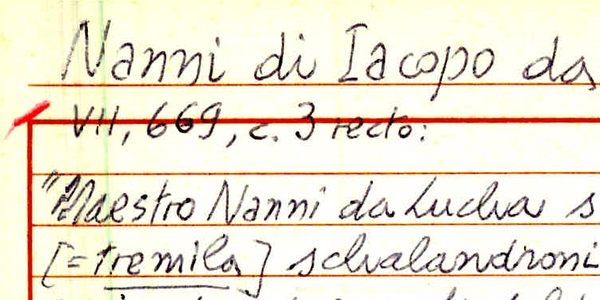 Nanni di Iacopo da
VII, 669, c. 3 recto:
"Maestro Nanni da Lucha s
[=tremila] schalandroni